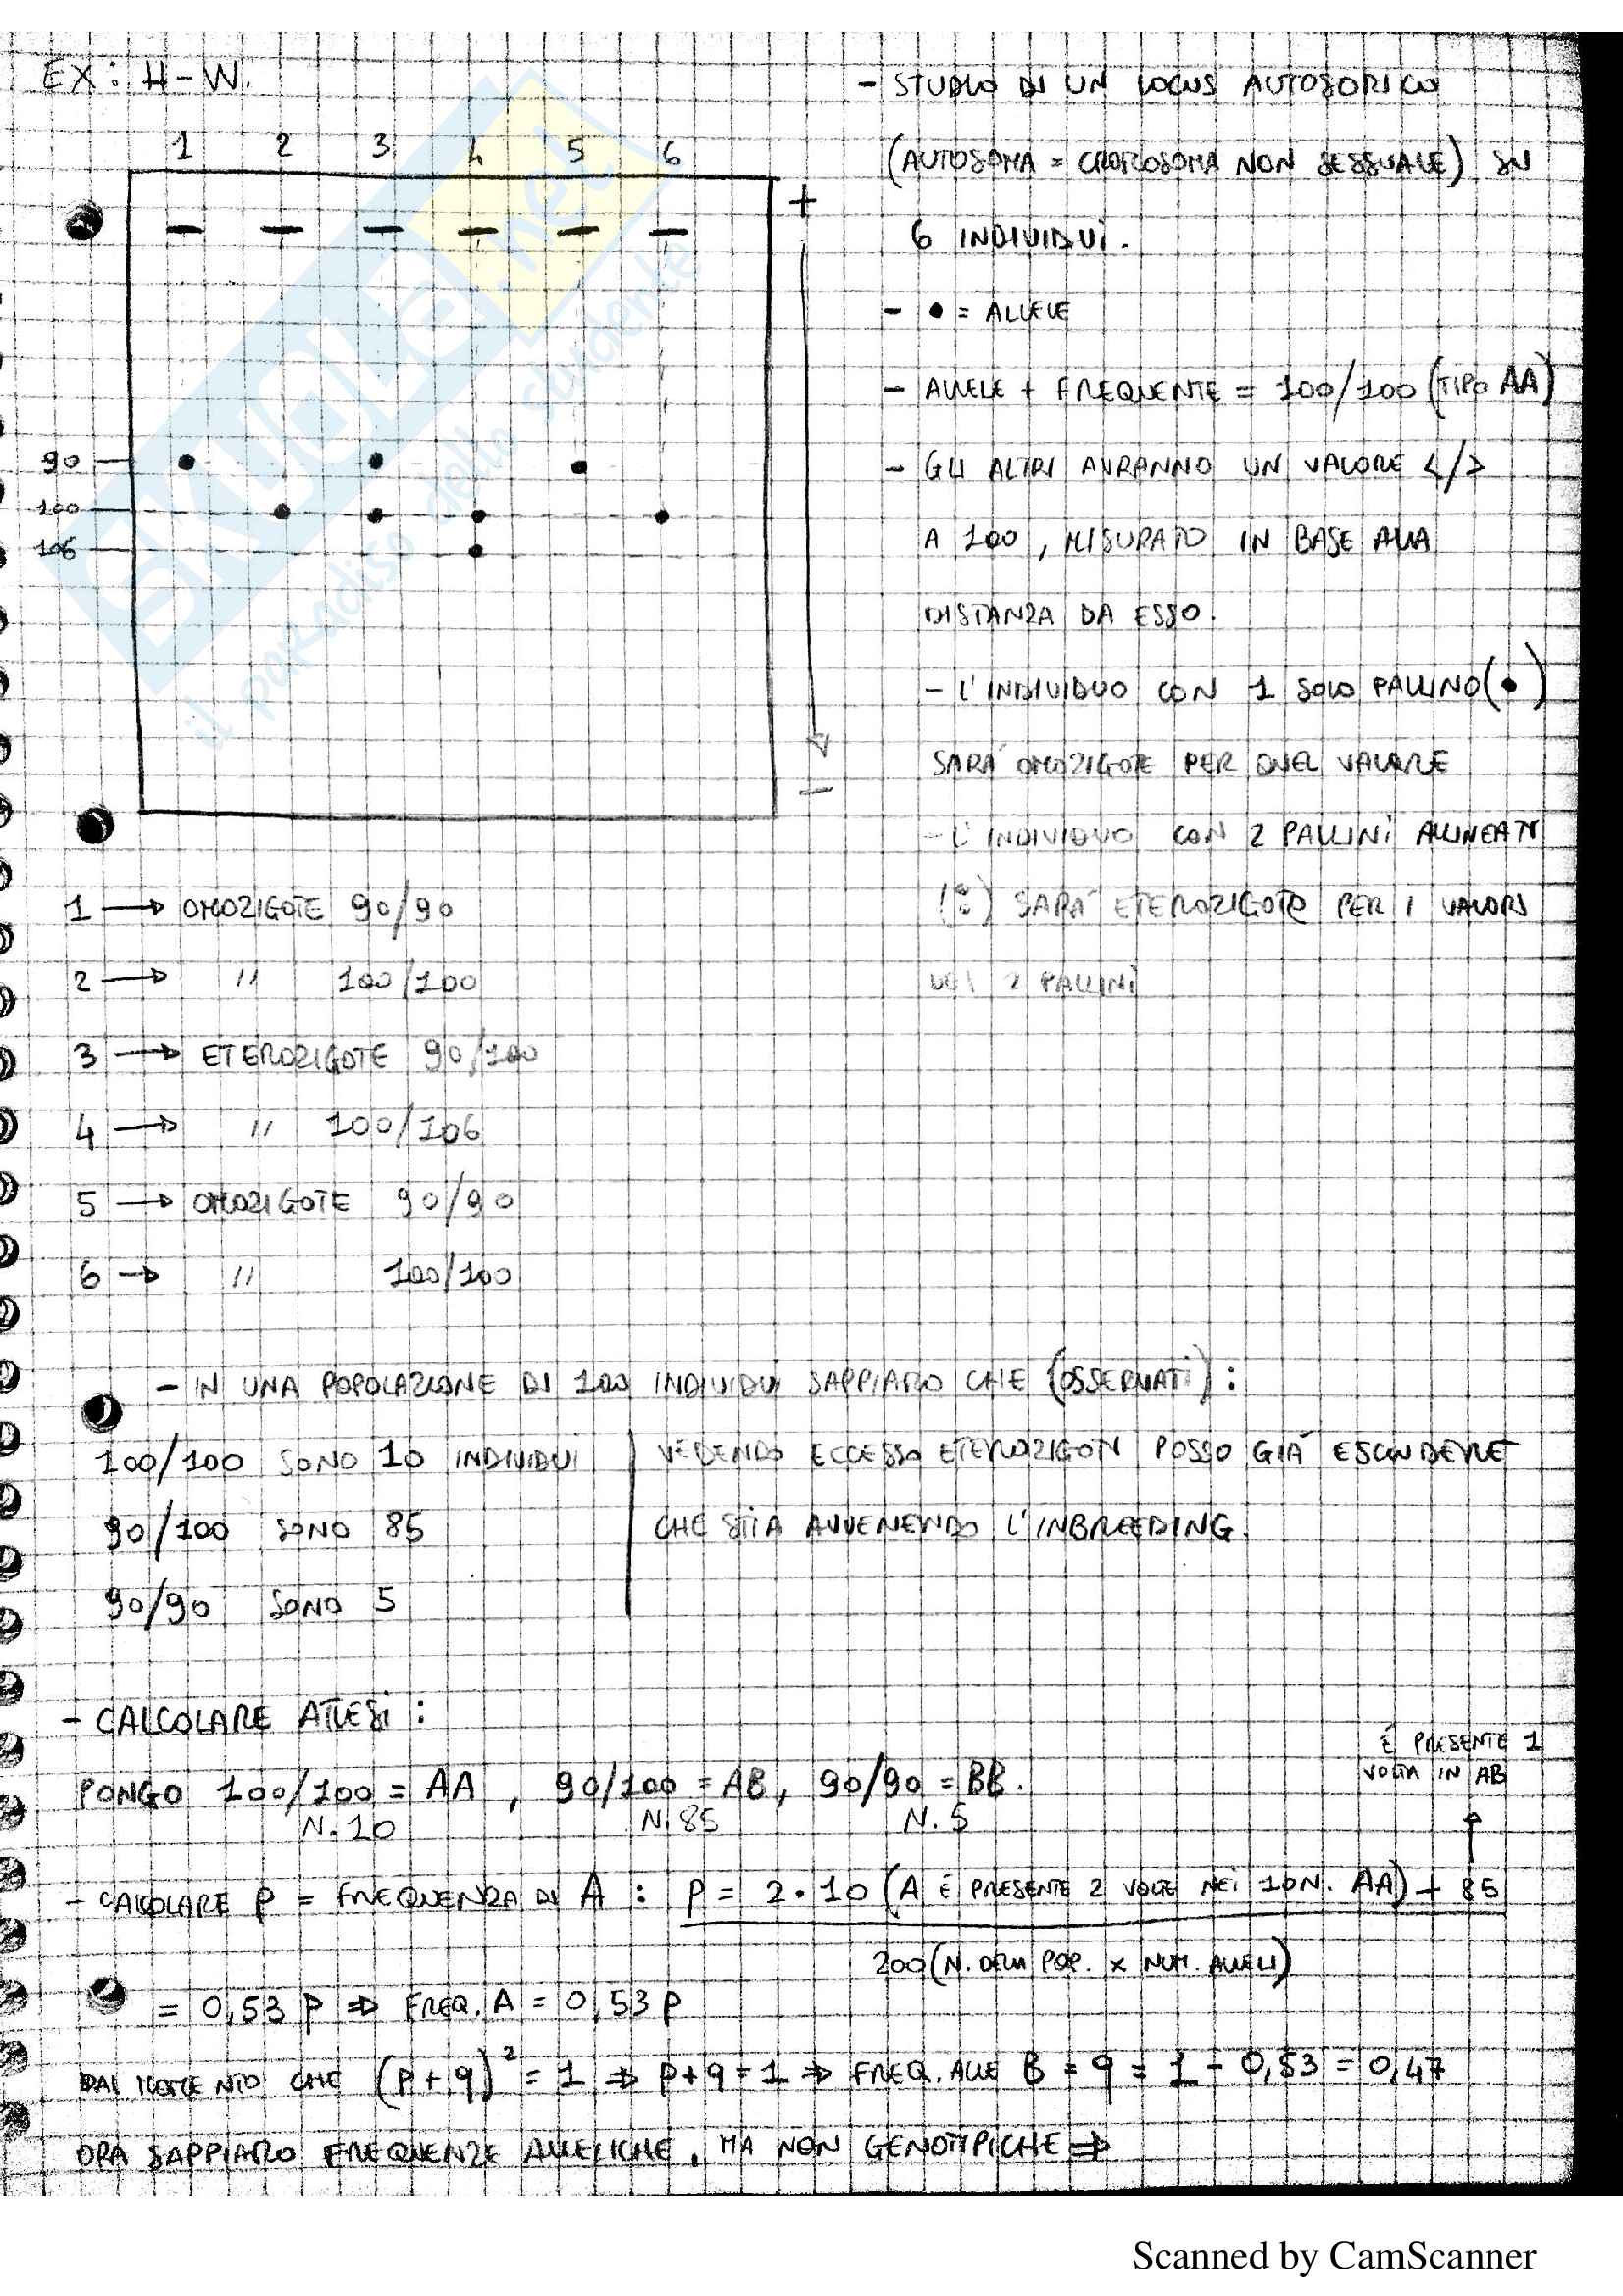 EX: H-W.
1 2 3 4 5 6
+
90
100
106
-
- STUDIO DI UN LOCUS AUTOSOMICO
(AUTOSOMA = CROMOSOMA NON SESSUALE) SU
6 INDIVIDUI.
- • = ALLELE
- ALLELE + FREQUENTE = 100/100 (TIPO AA)
- GLI ALTRI AVRANNO UN VALORE </>
A 100, MISURATO IN BASE ALLA
DISTANZA DA ESSO.
- L'INDIVIDUO CON 1 SOLO PALLINO (•)
SARÀ OMOZIGOTE PER QUEL VALORE
- L'INDIVIDUO CON 2 PALLINI ALLINEATI
(:) SARÀ ETEROZIGOTE PER I VALORI
DEI 2 PALLINI
1 → OMOZIGOTE 90/90
2 → " 100/100
3 → ETEROZIGOTE 90/100
4 → " 100/106
5 → OMOZIGOTE 90/90
6 → " 100/100
- IN UNA POPOLAZIONE DI 100 INDIVIDUI SAPPIAMO CHE (OSSERVATI):
100/100 SONO 10 INDIVIDUI
90/100 SONO 85
90/90 SONO 5
VEDENDO ECCESSO ETEROZIGOTI POSSO GIÀ ESCUDERE
CHE STIA AVVENENDO L'INBREEDING.
- CALCOLARE ATTESI:
È PRESENTE 1
VOLTA IN AB
PONGO 100/100 = AA, 90/100 = AB, 90/90 = BB.
N. 10 N. 85 N. 5
- CALCOLARE p = FREQUENZA DI A: p = 2·10 (A È PRESENTE 2 VOLTE NEI 10 N. AA) + 85
200 (N. DELLA POP. x NUM. ALLELI)
= 0,53 p ⇒ FREQ. A = 0,53 p
DAL MOMENTO CHE (p+q)² = 1 ⇒ p+q = 1 ⇒ FREQ. ALLE B = q = 1 - 0,53 = 0,47
ORA SAPPIAMO FREQUENZE ALLELICHE, MA NON GENOTIPICHE ⇒
SKUOLA.net
il paradiso dello studente
Scanned by CamScanner